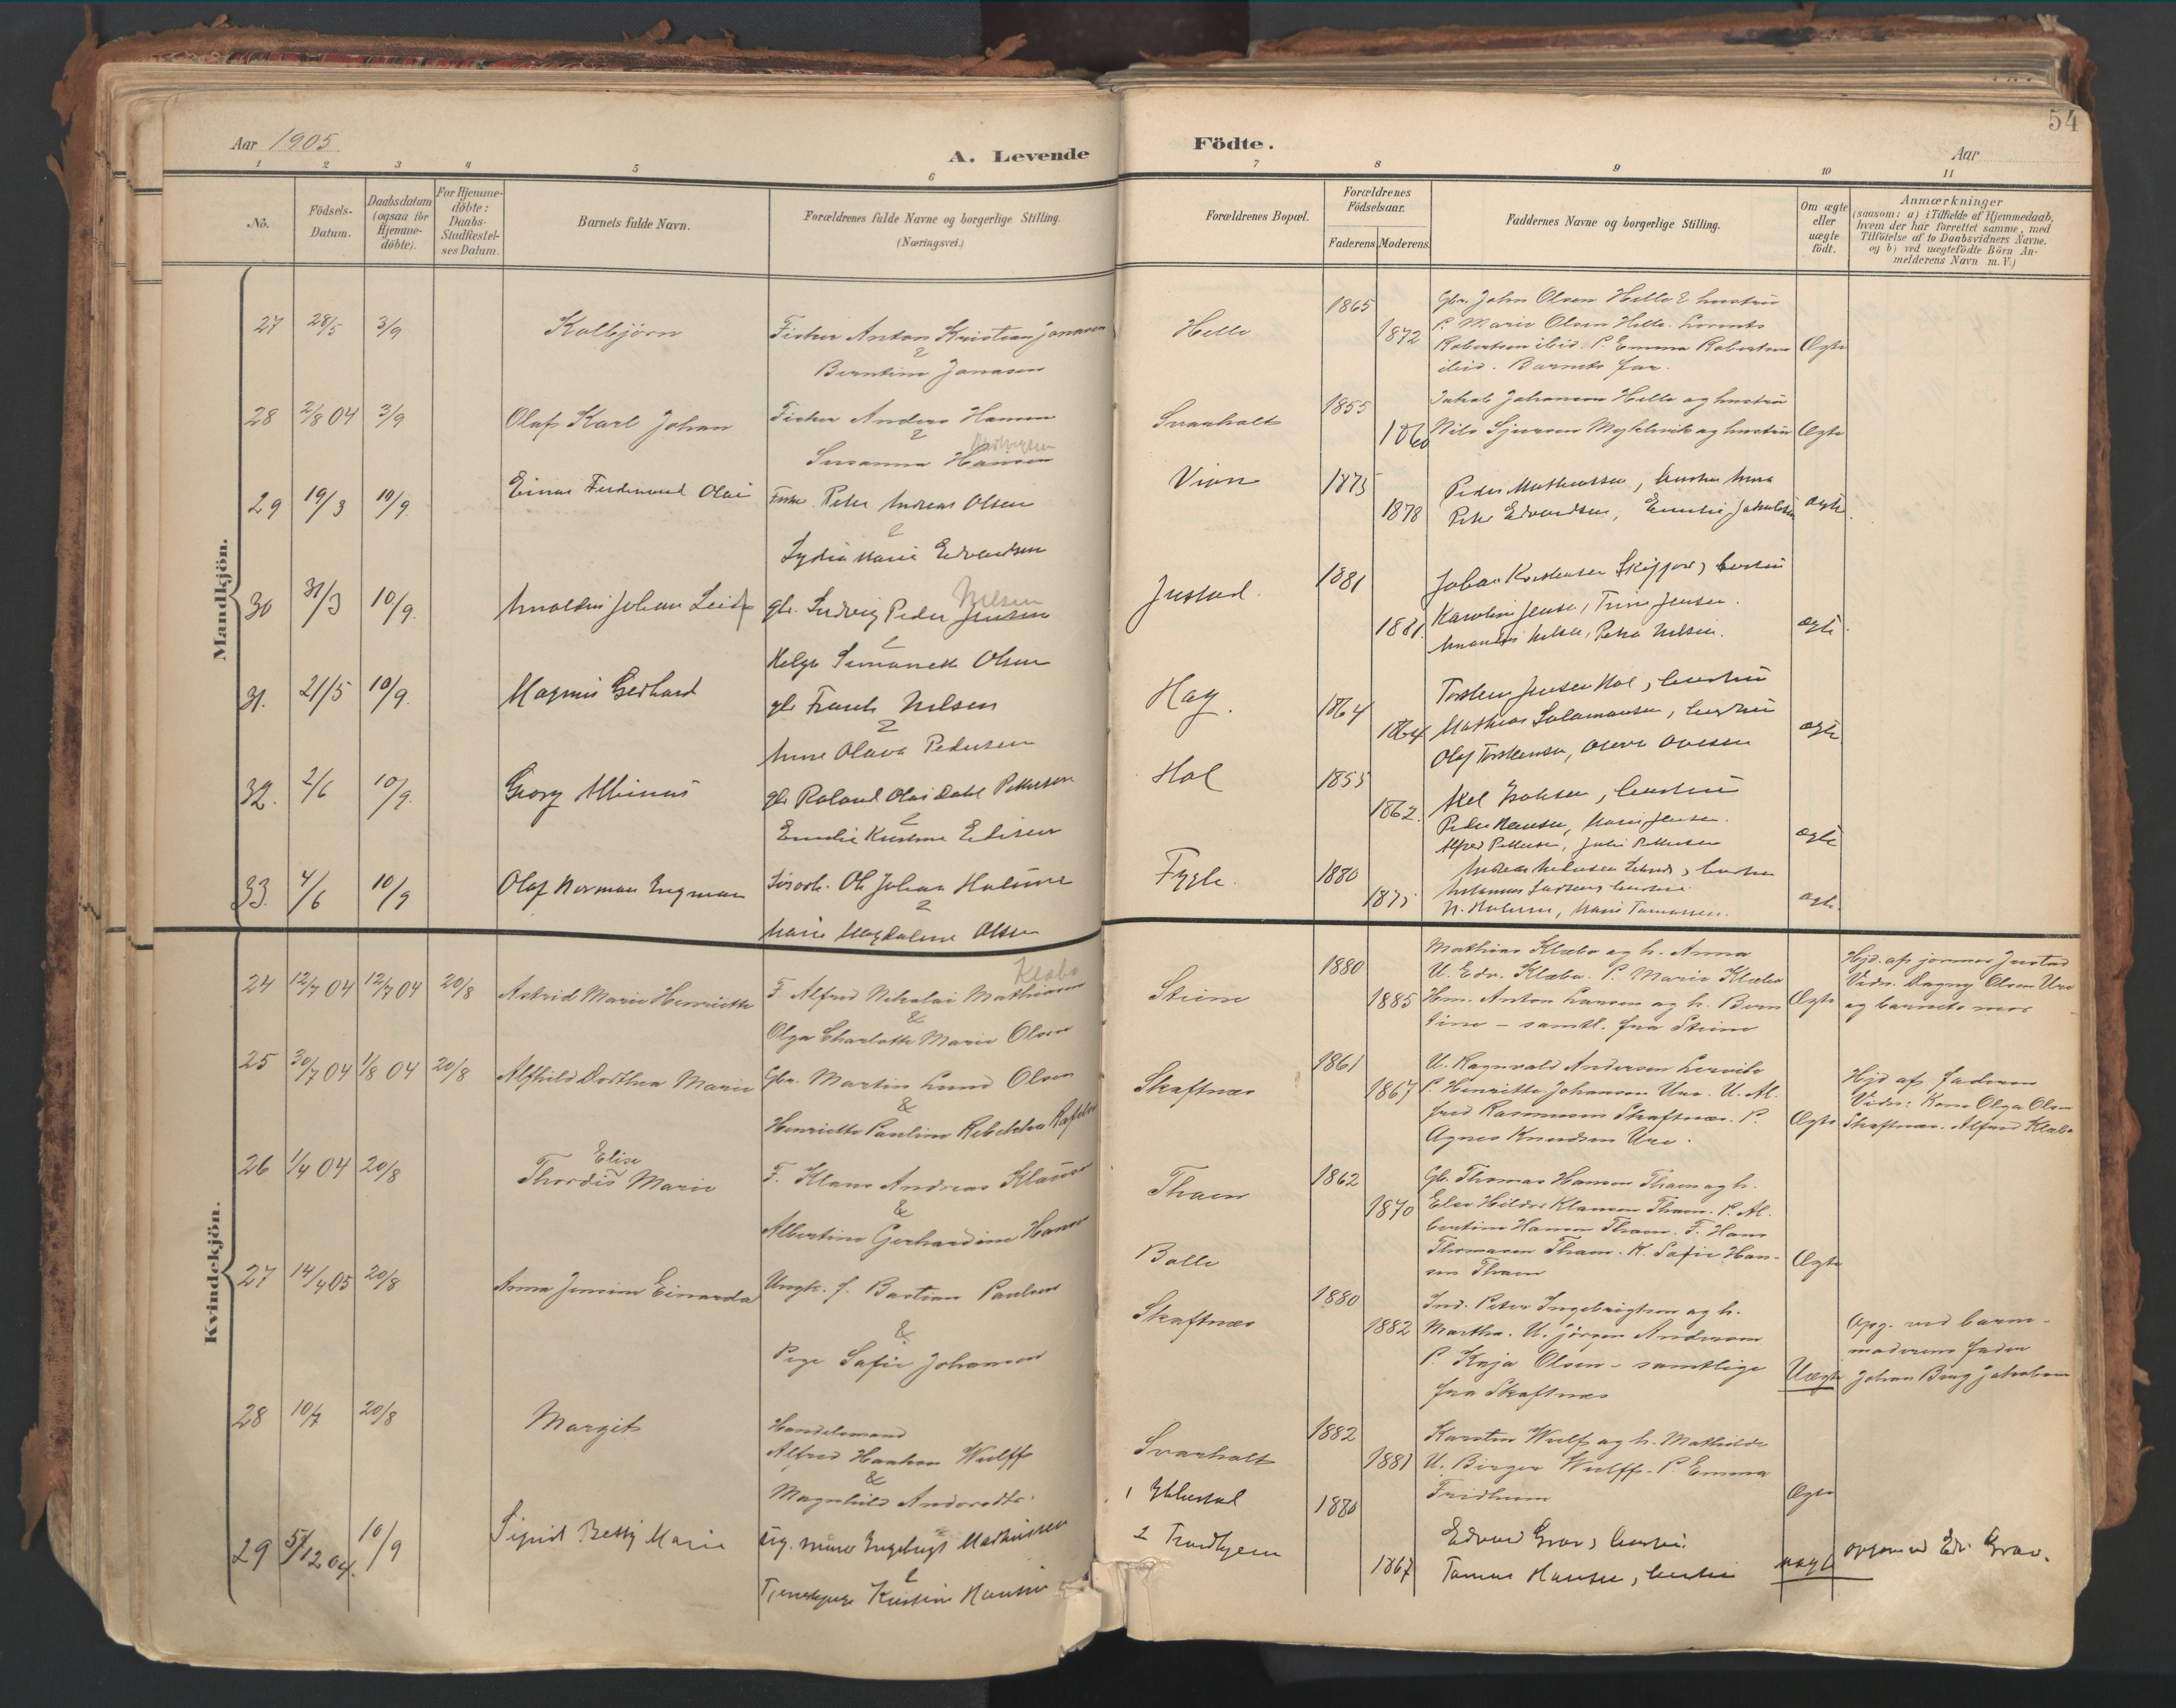 54
Aar 1905
A. Levende
Födte.
Aar
1 2 3 4 5 6 7 8 9 10 11
Nö.
Födsels-
Datum.
Daabsdatum
(ogsaa for
Hjemme-
döbte).
For Hjemme-
döbte:
Daabs-
Stadfæstel-
ses Datum.
Barnets fulde Navn.
Forældrenes fulde Navne og borgerlige Stilling.
(Næringsvei.)
Forældrenes Bopæl.
Forældrenes
Födselsaar.
Faderens Moderens
Faddernes Navne og borgerlige Stilling.
Om ægte
eller
uægte
födt.
Anmærkninger
(saasom: a) i Tilfælde af Hjemmedaab,
hvem der har forrettet samme, med
Tilföielse af to Daabsvidners Navne,
og b) ved uægtefödte Börn An-
melderens Navn m.V.)
Mandkjön.
27 28/5 3/9 Kolbjörn
Fisker Anton Kristian Jonasen
&
Berntine Jonasen
Helle
1865
1872
Gbr. John Olsen Helle & hustru
P. Marie Olsen Helle. Lorents
Robertsen ibid. P. Emma Robertsen
ibid. Barnets far.
Ægte
28 2/8 04 3/9 Olaf Karl Johan
Fisker Anders Hansen
&
Susanna Hansen
Svarholt
1855
1860
Jakob Johansen Helle og hustru
Nils Sjursen Myklevik og hustru
Ægte
29 19/3 10/9 Einar Ferdinand Olai
Fisker Peter Andreas Olsen
&
Lydia Marie Edvardsen
Vian
1875
1878
Peder Matheussen, hustru Anna
Peter Edvardsen, Emilie Jakobsen
ægte.
30 31/3 10/9 Arnoldus Johan Leif
gbr. Ludvig Peder Jensen
Nilsen
&
Helga Simonette Olsen
Justad.
1881
1881.
Johan Kristensen Skifjord, hustru
Karoline Jensen, Trine Jensen.
Amandus Nilsen, Petra Nilsen.
ægte.
31. 21/5 10/9. Magnus Gerhard
gbr Frants Nilsen
&
Anne Olava Pedersen
Hag.
1864
1864
Torsten Jensen Hol, hustru
Mathias Salamonsen, hustru
Olaf Torstensen,
ægte.
32. 2/6 10/9. Georg Albinus
gbr Roland Olai Dahl Pettersen
&
Emelie Kristine Elisen
Hol
1855
1862.
Axel Isaksen, hustru
Peder Hansen, Marie Jensen.
Alfred Pettersen, Julie Pettersen
ægte
33. 4/6 10/9 Olaf Norman Ingman
Ole Johan
&
Marie Magdalene Olsen
Fygle.
1880
1875
ægte.
Kvindekjön.
24 12/7 04 12/7 04 20/8 Astrid Marie Henriette
Klæbo
F. Alfred Nikolai Mathiasen
&
Olga Charlotte Marie Olsen
Steine
1880
1885
Mathias Klæbo og h. Anna
U. Edv. Klæbo. P. Marie Klæbo
Hm. Anton Larsen og h. Bern
tine - samtl. fra Steine
Ægte
Hjd. af jormor Justad
Vidn. Dagny Olsen Ure
og barnets mor
25 30/7 04 1/8 04 20/8 Alfhild Dorthea Marie
Gbr. Martin Lund Olsen
&
Henriette Pauline Rebekka Rafelsen
Skaftnes
1861
1867
U. Ragnvald Andersen Lervik
P. Henriette Johansen Ure. U. Al-
fred Rasmussen Skaftnes. P.
Agnes Knudsen Ure.
Ægte
Hjd af faderen
Vidn: Kone Olga Olsen
Skaftnes. Alfred Klæbo
26 1/4 04 20/8
Elise
Thordis Marie
F. Klaus Andreas Klausen
&
Albertine Gerhardine Hansen
Tharn
1862
1870
Gb. Thomas Hansen Tharn og h.
Else Hilder Klausen Tharn. P. Al-
bertine Hansen Tharn. F. Hans
Thomasen Tharn. K. Safie Han-
sen Tharn
Ægte
27 14/4 05 20/8 Anna Jensine Einarda
Ungk. f. Bastian Paulsen
&
Pige Safie Johansen
Balle
Skaftnes
1880
1882
Ind. Peter Ingebrigtsen og h.
Martha. U. Jörgen Andersen
P. Kaja Olsen - samtlige
fra Skaftnes
Uægte
Opg. ved barne-
moderens fader
Johan Berg Jakobsen
28 10/7 20/8 Margit
Handelsmand
Alfred Haakon Wulff
&
Magnhild
Svarholt
1882
1881
Karsten Wulff og h. Mathilde
U. Birger Wulff. P. Emma
Fridheim
Ægte
29 5/12 04. 10/9 Sigrid Betsy Marie
Ug. murer Engebrigt Mathisen
&
Tjenestepige Kristine Hansen
1
2 Trondhjem
1880
1867
Edvard Grav, hustru.
Tomas Hansen, hustru
uægte
opgave ved Edv. Grav.